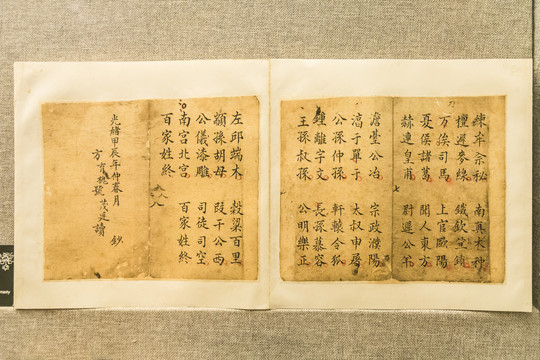 練牟宗秘 南真大种
檀遐参緣
万俟司馬 上官歐陽
夏侯諸葛 聞人東方
赫連皇甫 尉遲公羊
澹臺公冶 宗政濮陽
淳于單于 太叔申屠
公孫仲孫 軒轅令狐
鍾離宇文 長孫慕容
王孫叔孫 公明樂正
左邱端木 穀梁百里
顓孫胡母 段干公西
公儀漆雕 司徒司空
南宮北宮 百家姓終
百家姓終
光緒甲辰年仲春月
方 號茂廷讀 鈔